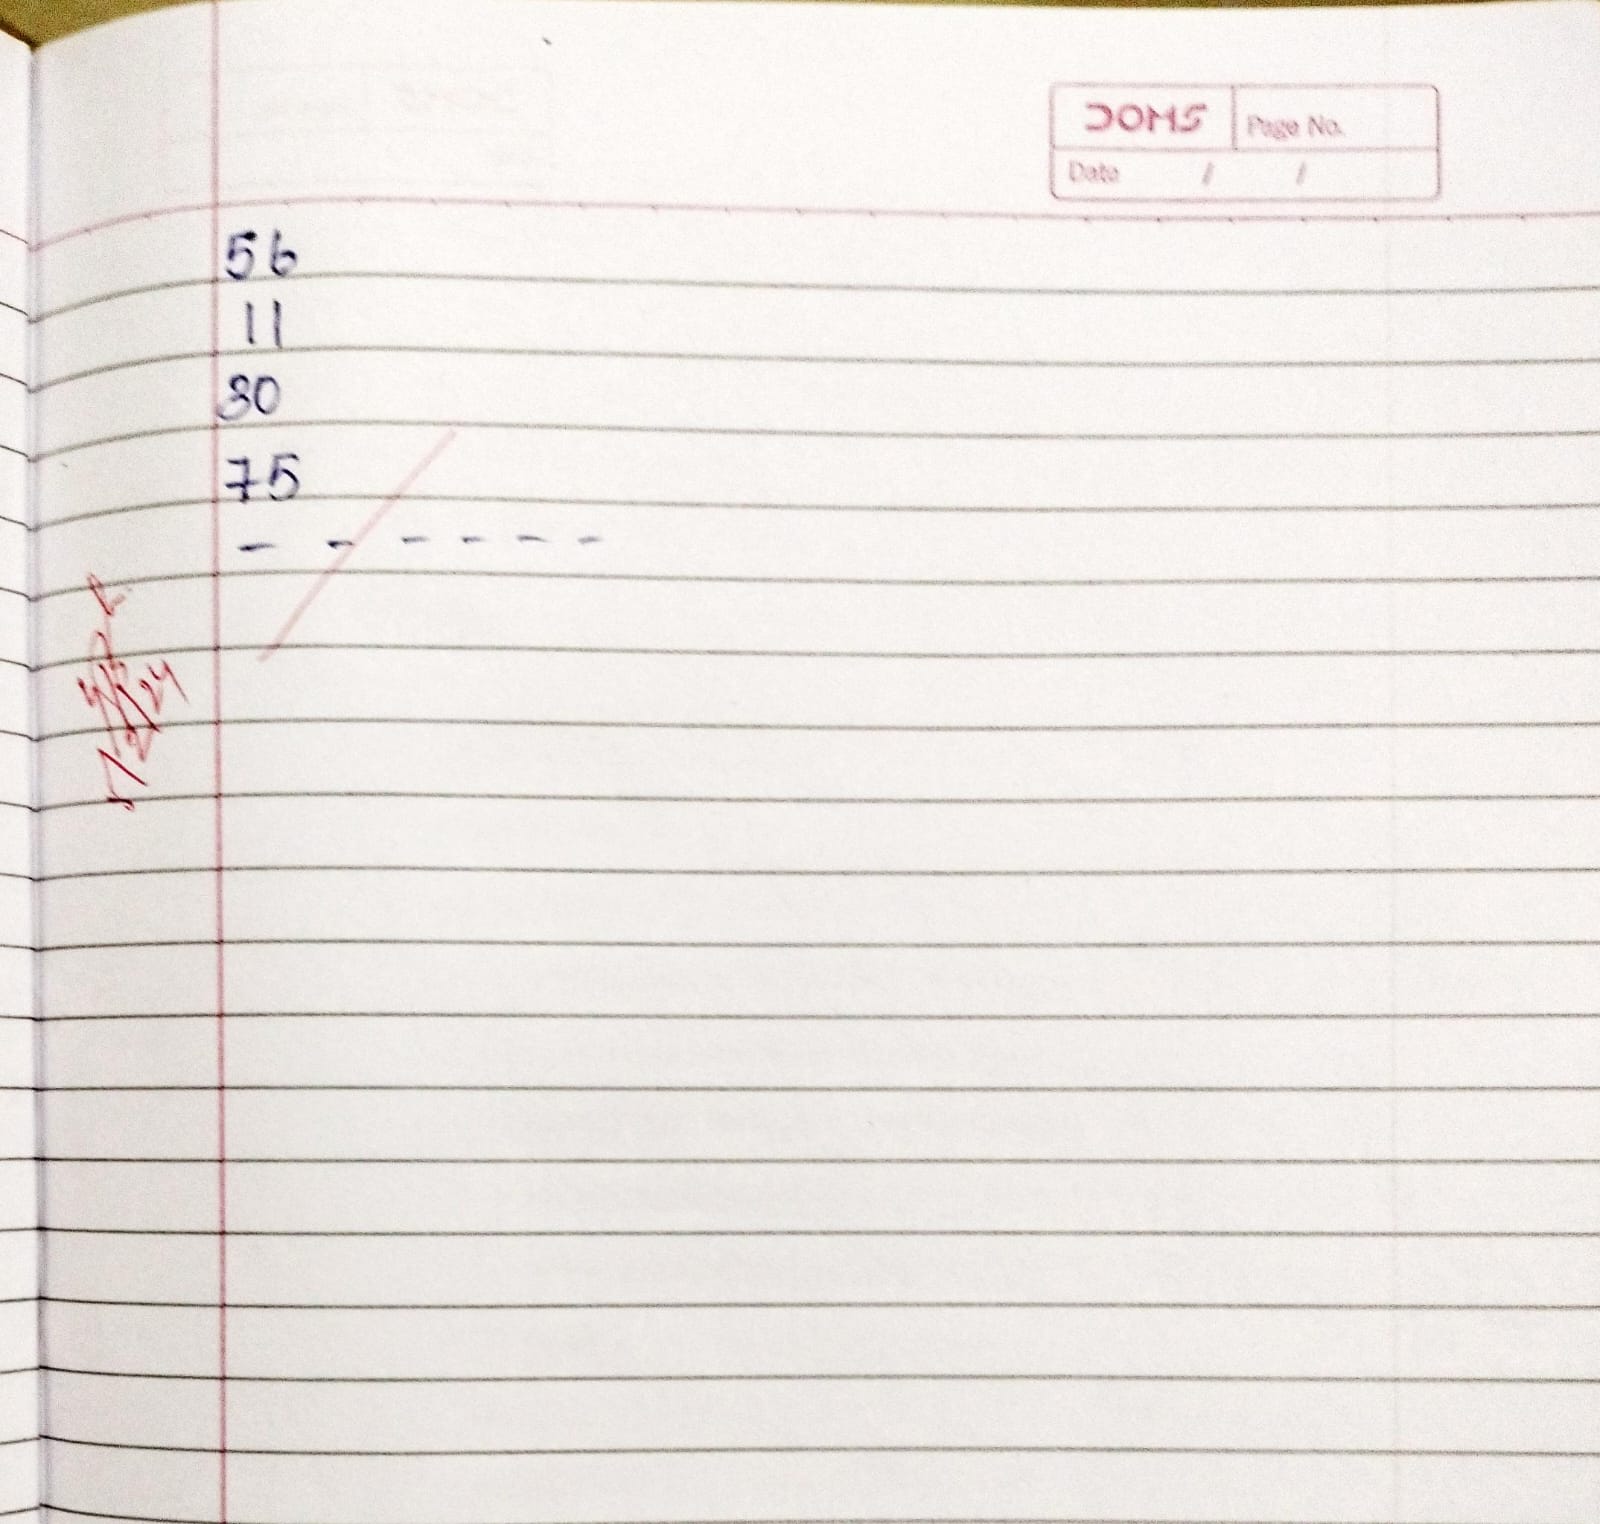 DOMS Page No.
Date / /
56
11
30
75
- - - - - -
5/2/24